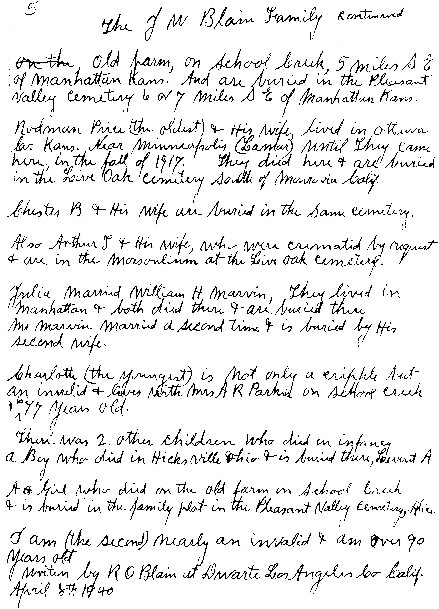 5
The J W Blain Family Continued
on the, old farm, on school Creek, 5 miles S E
of Manhattan Kans. And are buried in the Pleasant
Valley Cemetery 6 or 7 Miles S E of Manhattan Kans.
Rodman Price (the oldest) & His wife, lived in Ottawa
Co. Kans. Near Minneapolis (Lamar) until They came
here, in the fall of 1917. They died here & are buried
in the Live Oak cemetery South of Monrovia Calif.
Chester B & His wife are buried in the same cemetery.
Also Arthur J & His wife, who were cremated by request
& are in the Morsonlium at the Live Oak cemeterg.
Julia Married William H Marvin, They lived in
Manhattan & both died there & are buried there
Mr Marvin Married a second time & is buried by His
second wife.
Charlotte (the youngest) is Not only a cripple but
an invalid & lives with Mrs A R Parkins on school creek
is 77 years old.
There was 2 other children who died in infancy
a Boy who died in Hicksville Ohio & is buried there, A
A Girl who died on the old farm on School Creek
& is buried in the family plot in the Pleasant Valley Cemetery,
I am (the second) nearly an invalid & am over 90
years old
written by R O Blain at Duarte Los Angeles Co Calif.
April 8th 1940